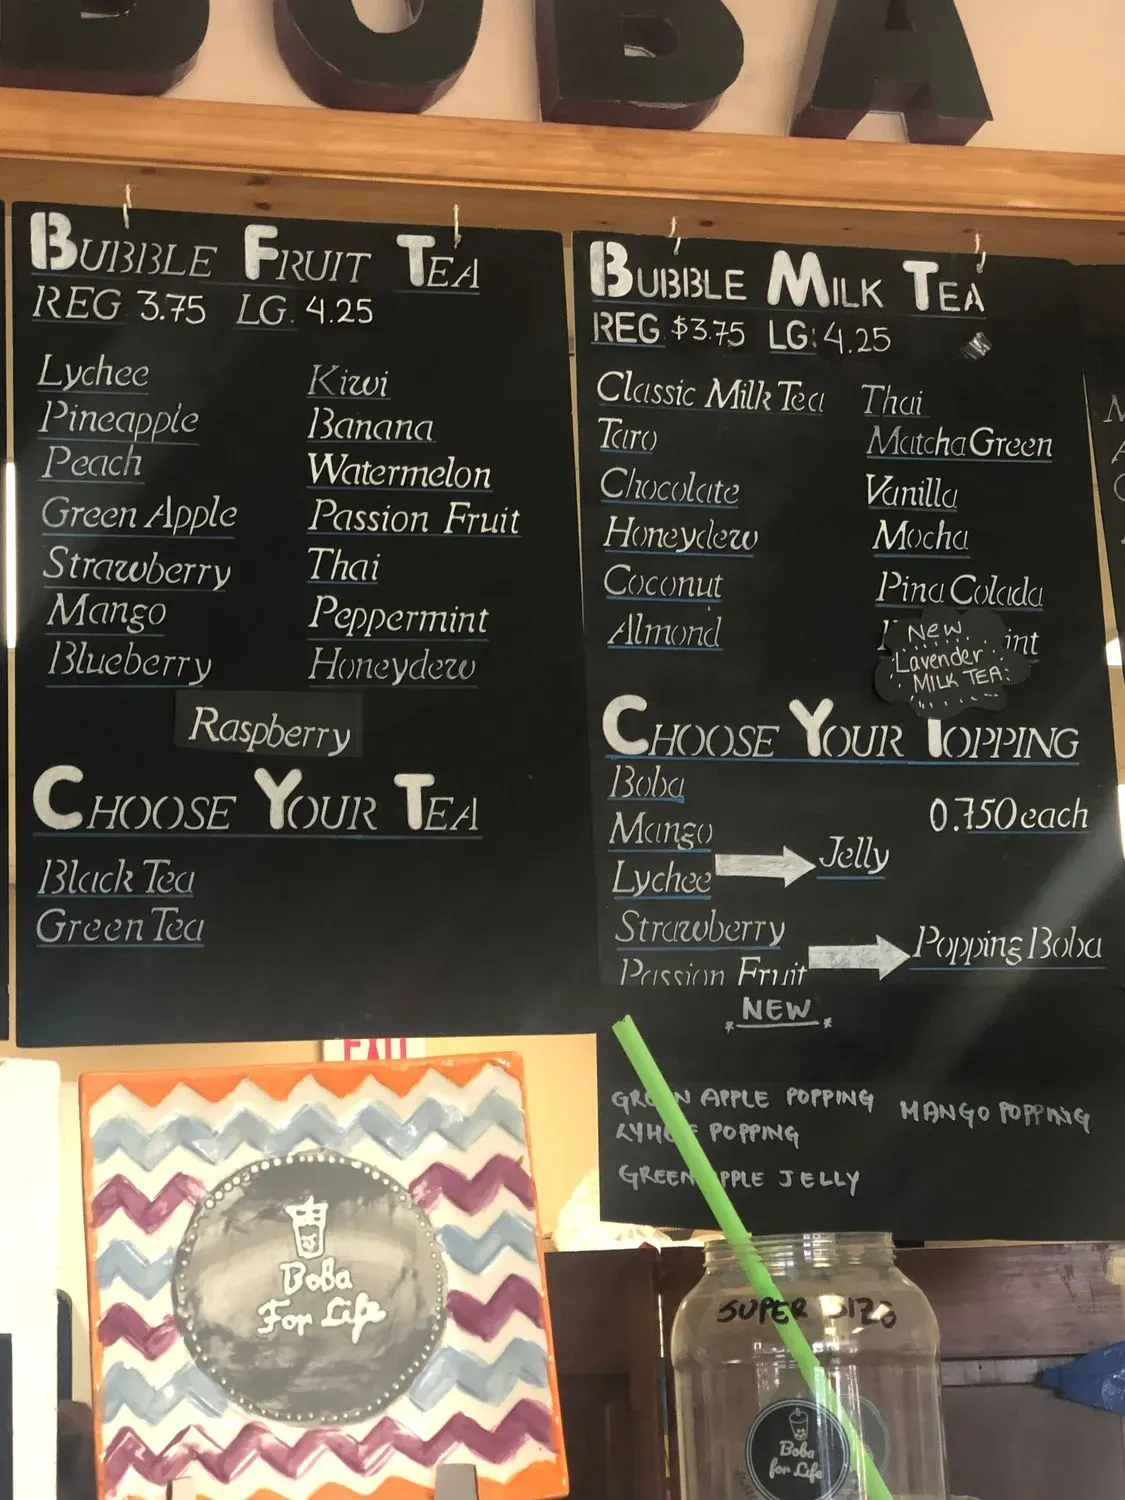 BOBA
BUBBLE FRUIT TEA
REG 3.75 LG. 4.25
Lychee
Pineapple
Peach
Green Apple
Strawberry
Mango
Blueberry
Kiwi
Banana
Watermelon
Passion Fruit
Thai
Peppermint
Honeydew
Raspberry
CHOOSE YOUR TEA
Black Tea
Green Tea
BUBBLE MILK TEA
REG $3.75 LG: 4.25
Classic Milk Tea
Taro
Chocolate
Honeydew
Coconut
Almond
Thai
Matcha Green
Vanilla
Mocha
Pina Colada
New
Lavender
MILK TEA
CHOOSE YOUR TOPPING
0.750 each
Boba
Mango
Lychee
Jelly
Strawberry
Passion Fruit
Popping Boba
NEW
GREEN APPLE POPPING
MANGO POPPING
POPPING
GREEN APPLE JELLY
Boba
For Life
SUPER
Boba
for Life